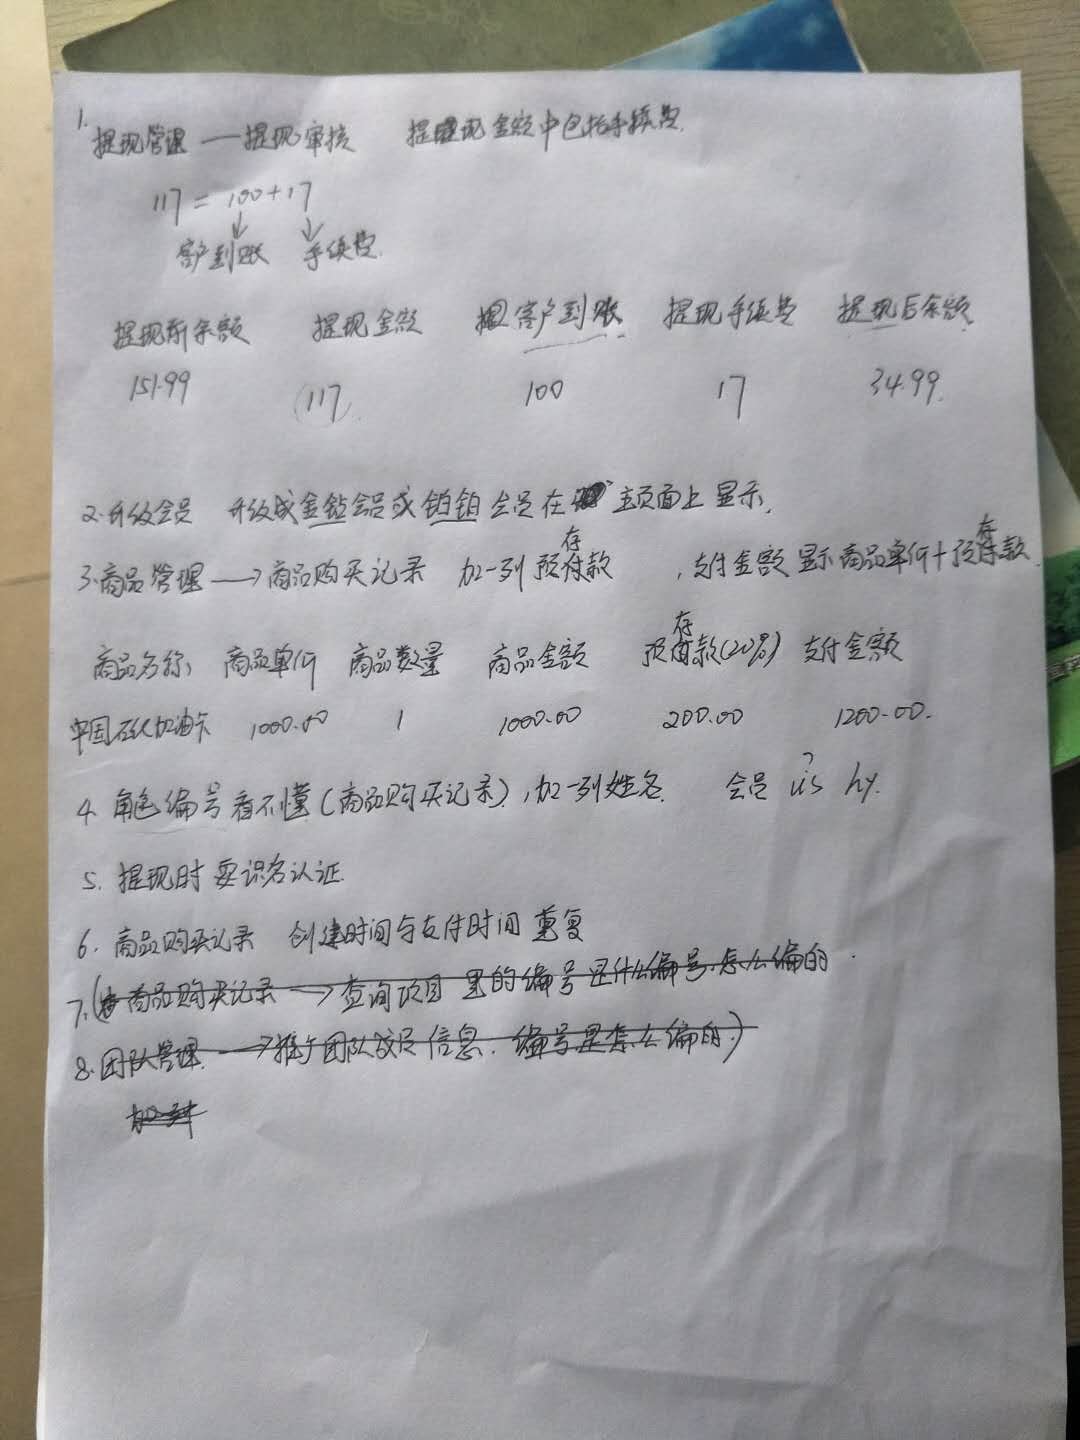 1.
提现管理 — 提现审核 提现金额中包括手续费.
117 = 100+17
↓ ↓
客户到账 手续费.
提现前余额 提现金额 客户到账 提现手续费 提现后余额.
151.99 (117) 100 17 34.99.
2.升级会员 升级成金钻会员或铂铂会员在 主页面上显示.
存 存
3.商品管理 → 商品购买记录 加一列预付款 ,支付金额显示商品单价+预付款.
存
商品名称 商品单价 商品数量 商品金额 预付款(20%) 支付金额
中国石化加油卡 1000.00 1 1000.00 200.00 1200.00.
4. 角色编号看不懂(商品购买记录),加一列姓名. 会员 hy.
5. 提现时要识名认证.
6. 商品购买记录 创建时间与支付时间 重复
7.(商品购买记录 → 查询项目 里的编号是什么编号.怎么编的.
8.团队管理. → 推广团队成员信息. 编号是怎么编的.)